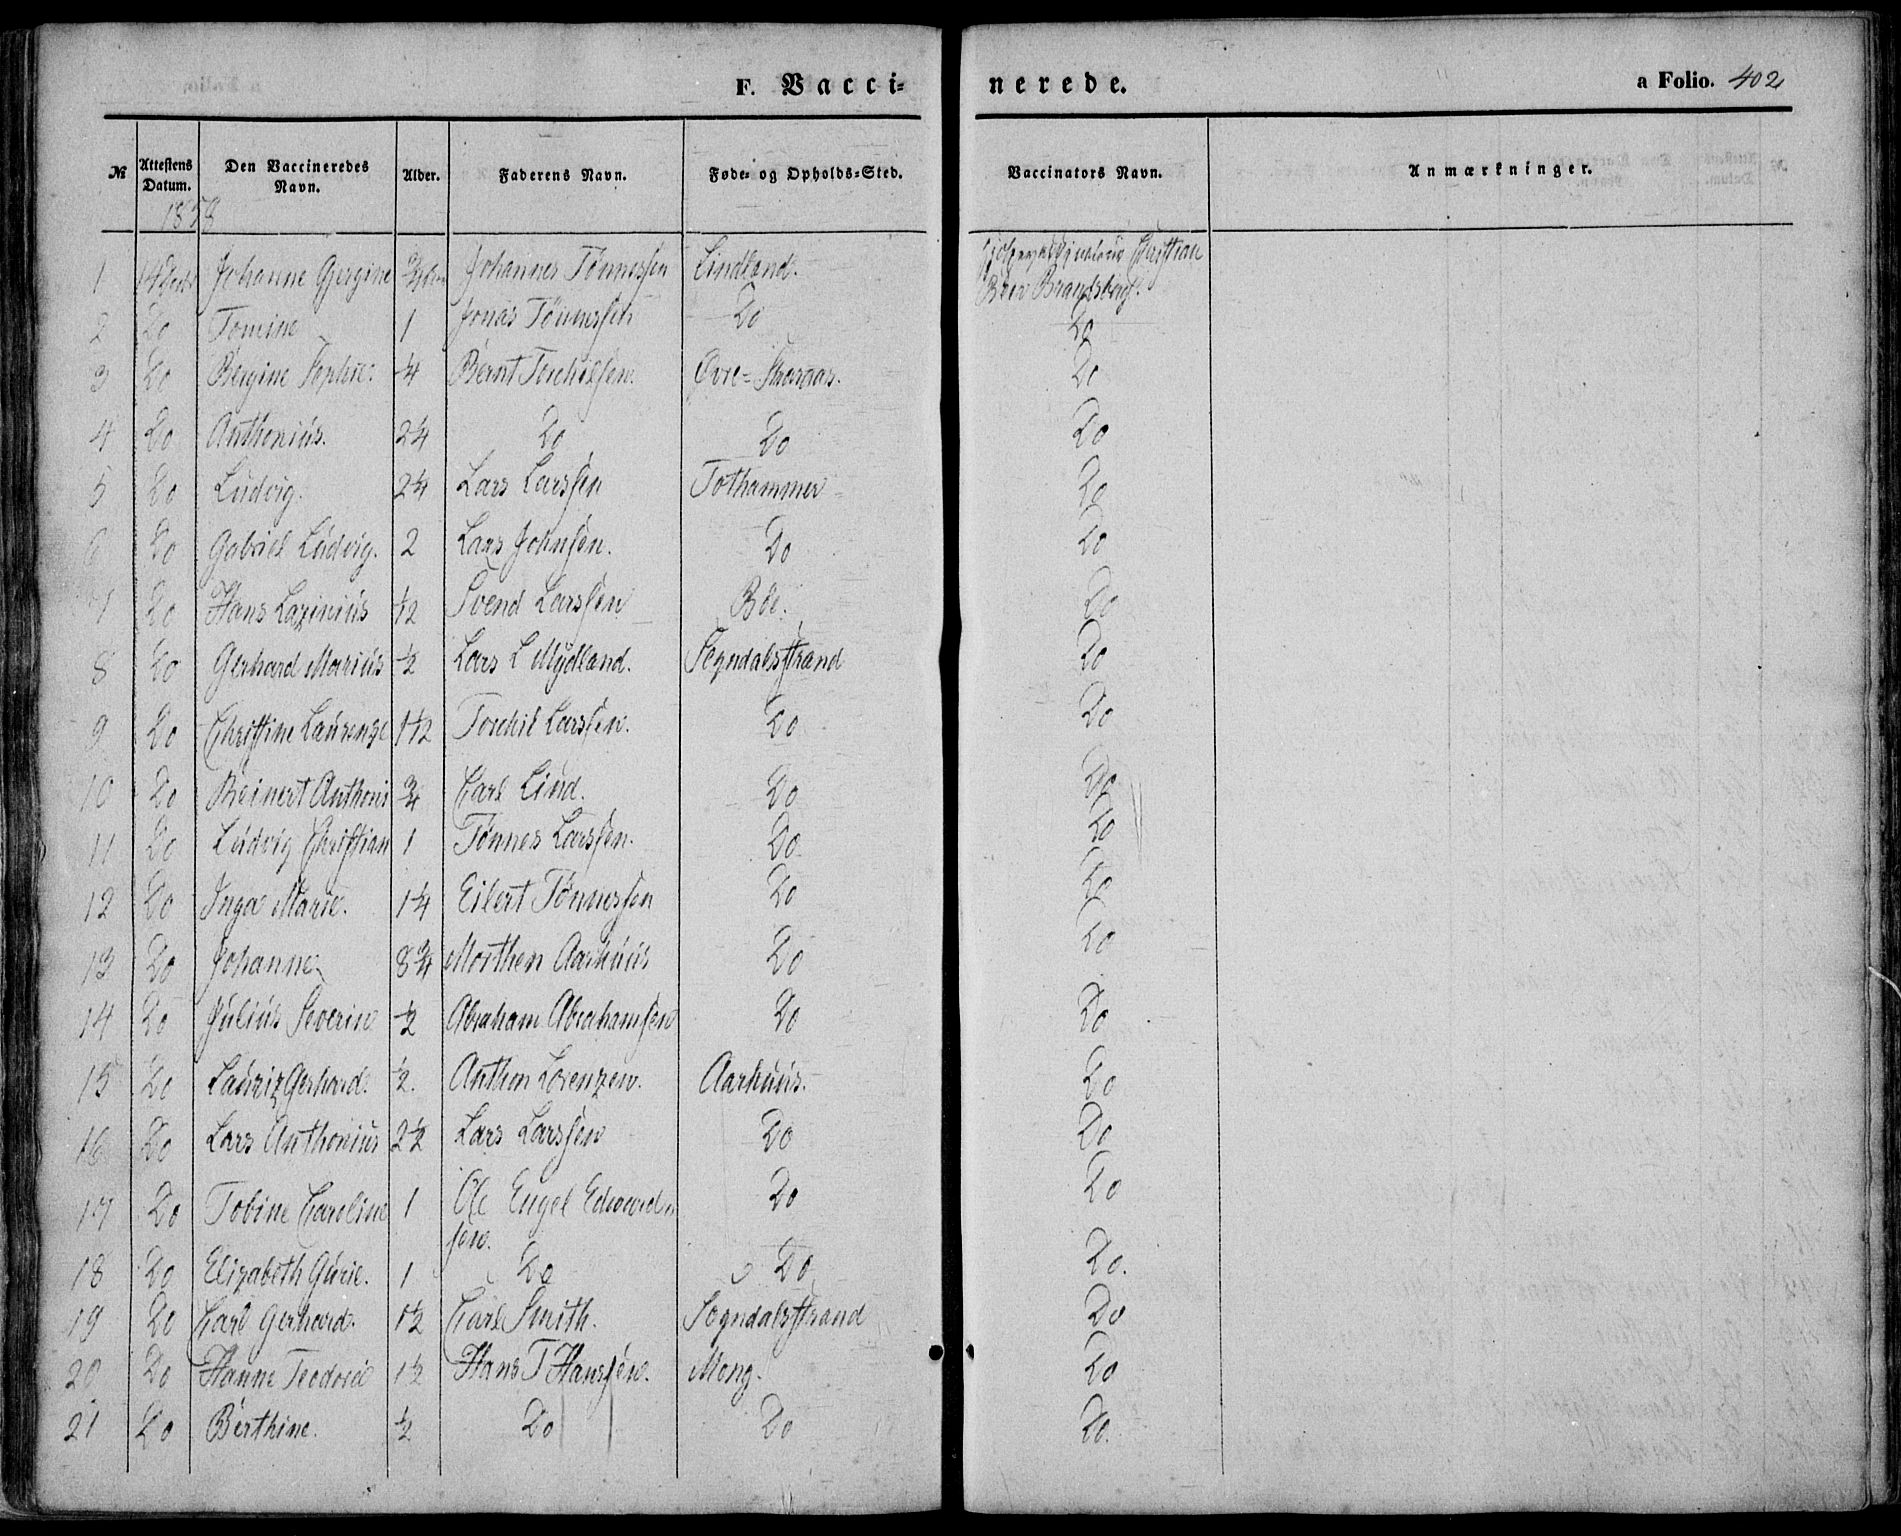 F. Vacci- nerede. a Folio. 402
№ Attestens Datum. Den Vaccineredes Navn. Alder. Faderens Navn. Føde- og Opholds-Sted. Vaccinators Navn. Anmærkninger.
1858
1 Johanne Gjergine Johannes Tønnessen Lindland. Christian
Brandsberg.
2 Do Tomine 1 Jonas Tønnessen Do Do
3 Do Bergine Sophie. ¼ Bernt Torchilsen. Øvre- Do
4 Do Anthonius. 2¼ Do Do Do
5 Do Ludvig. 2¼ Lars Larssen Tothammer Do
6 Do Gabriel Ludvig. 2 Lars Johnsen. Do Do
7 Do Hans Lazinius ½ Svend Larssen Böe. Do
8 Do Gerhard Marius ½ Lars L Mydland. Sogndalsstrand Do
9 Do Christine Laurenze 1½ Torchil Larssen. Do Do
10 Do Reinert Anthoni ¾ Carl Lind. Do Do
11 Do Ludvig Christian 1 Tønnes Larssen. Do Do
12 Do Inga Marie. 1¼ Eilert Tønnessen Do Do
13 Do Johanne 8¾ Morthen Aarhuus Do Do
14 Do Julius Severin ½ Abraham Abrahamsen Do Do
15 Do Lauriz Gerhard. ½. Anthon Lorenzen. Aarhuus. Do
16 Do Lars Anthonius 2½ Lars Larssen Do Do
17 Do Tobine Caroline 1 Ole Engel Edvard- Do Do
sen.
18 Do Elizabeth Gurie. 1 Do Do Do.
19 Do Carl Gerhard. 1½ Carl Smith. Sogndalsstrand Do
20 Do Hanne Teodora 1½ Hans T Hanssen. Mong. Do
21 Do Berthine. ½ Do Do Do.